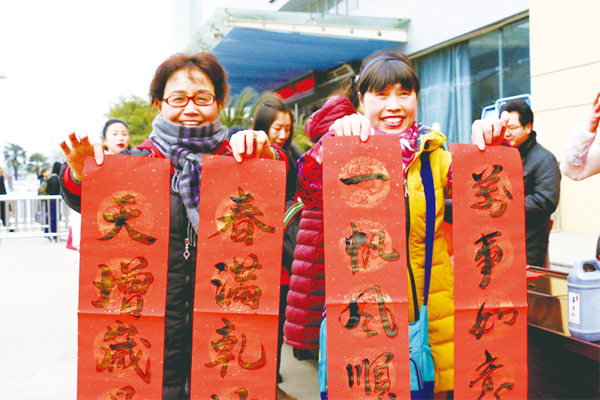 天增歲
春滿乾
一帆風順
萬事如意